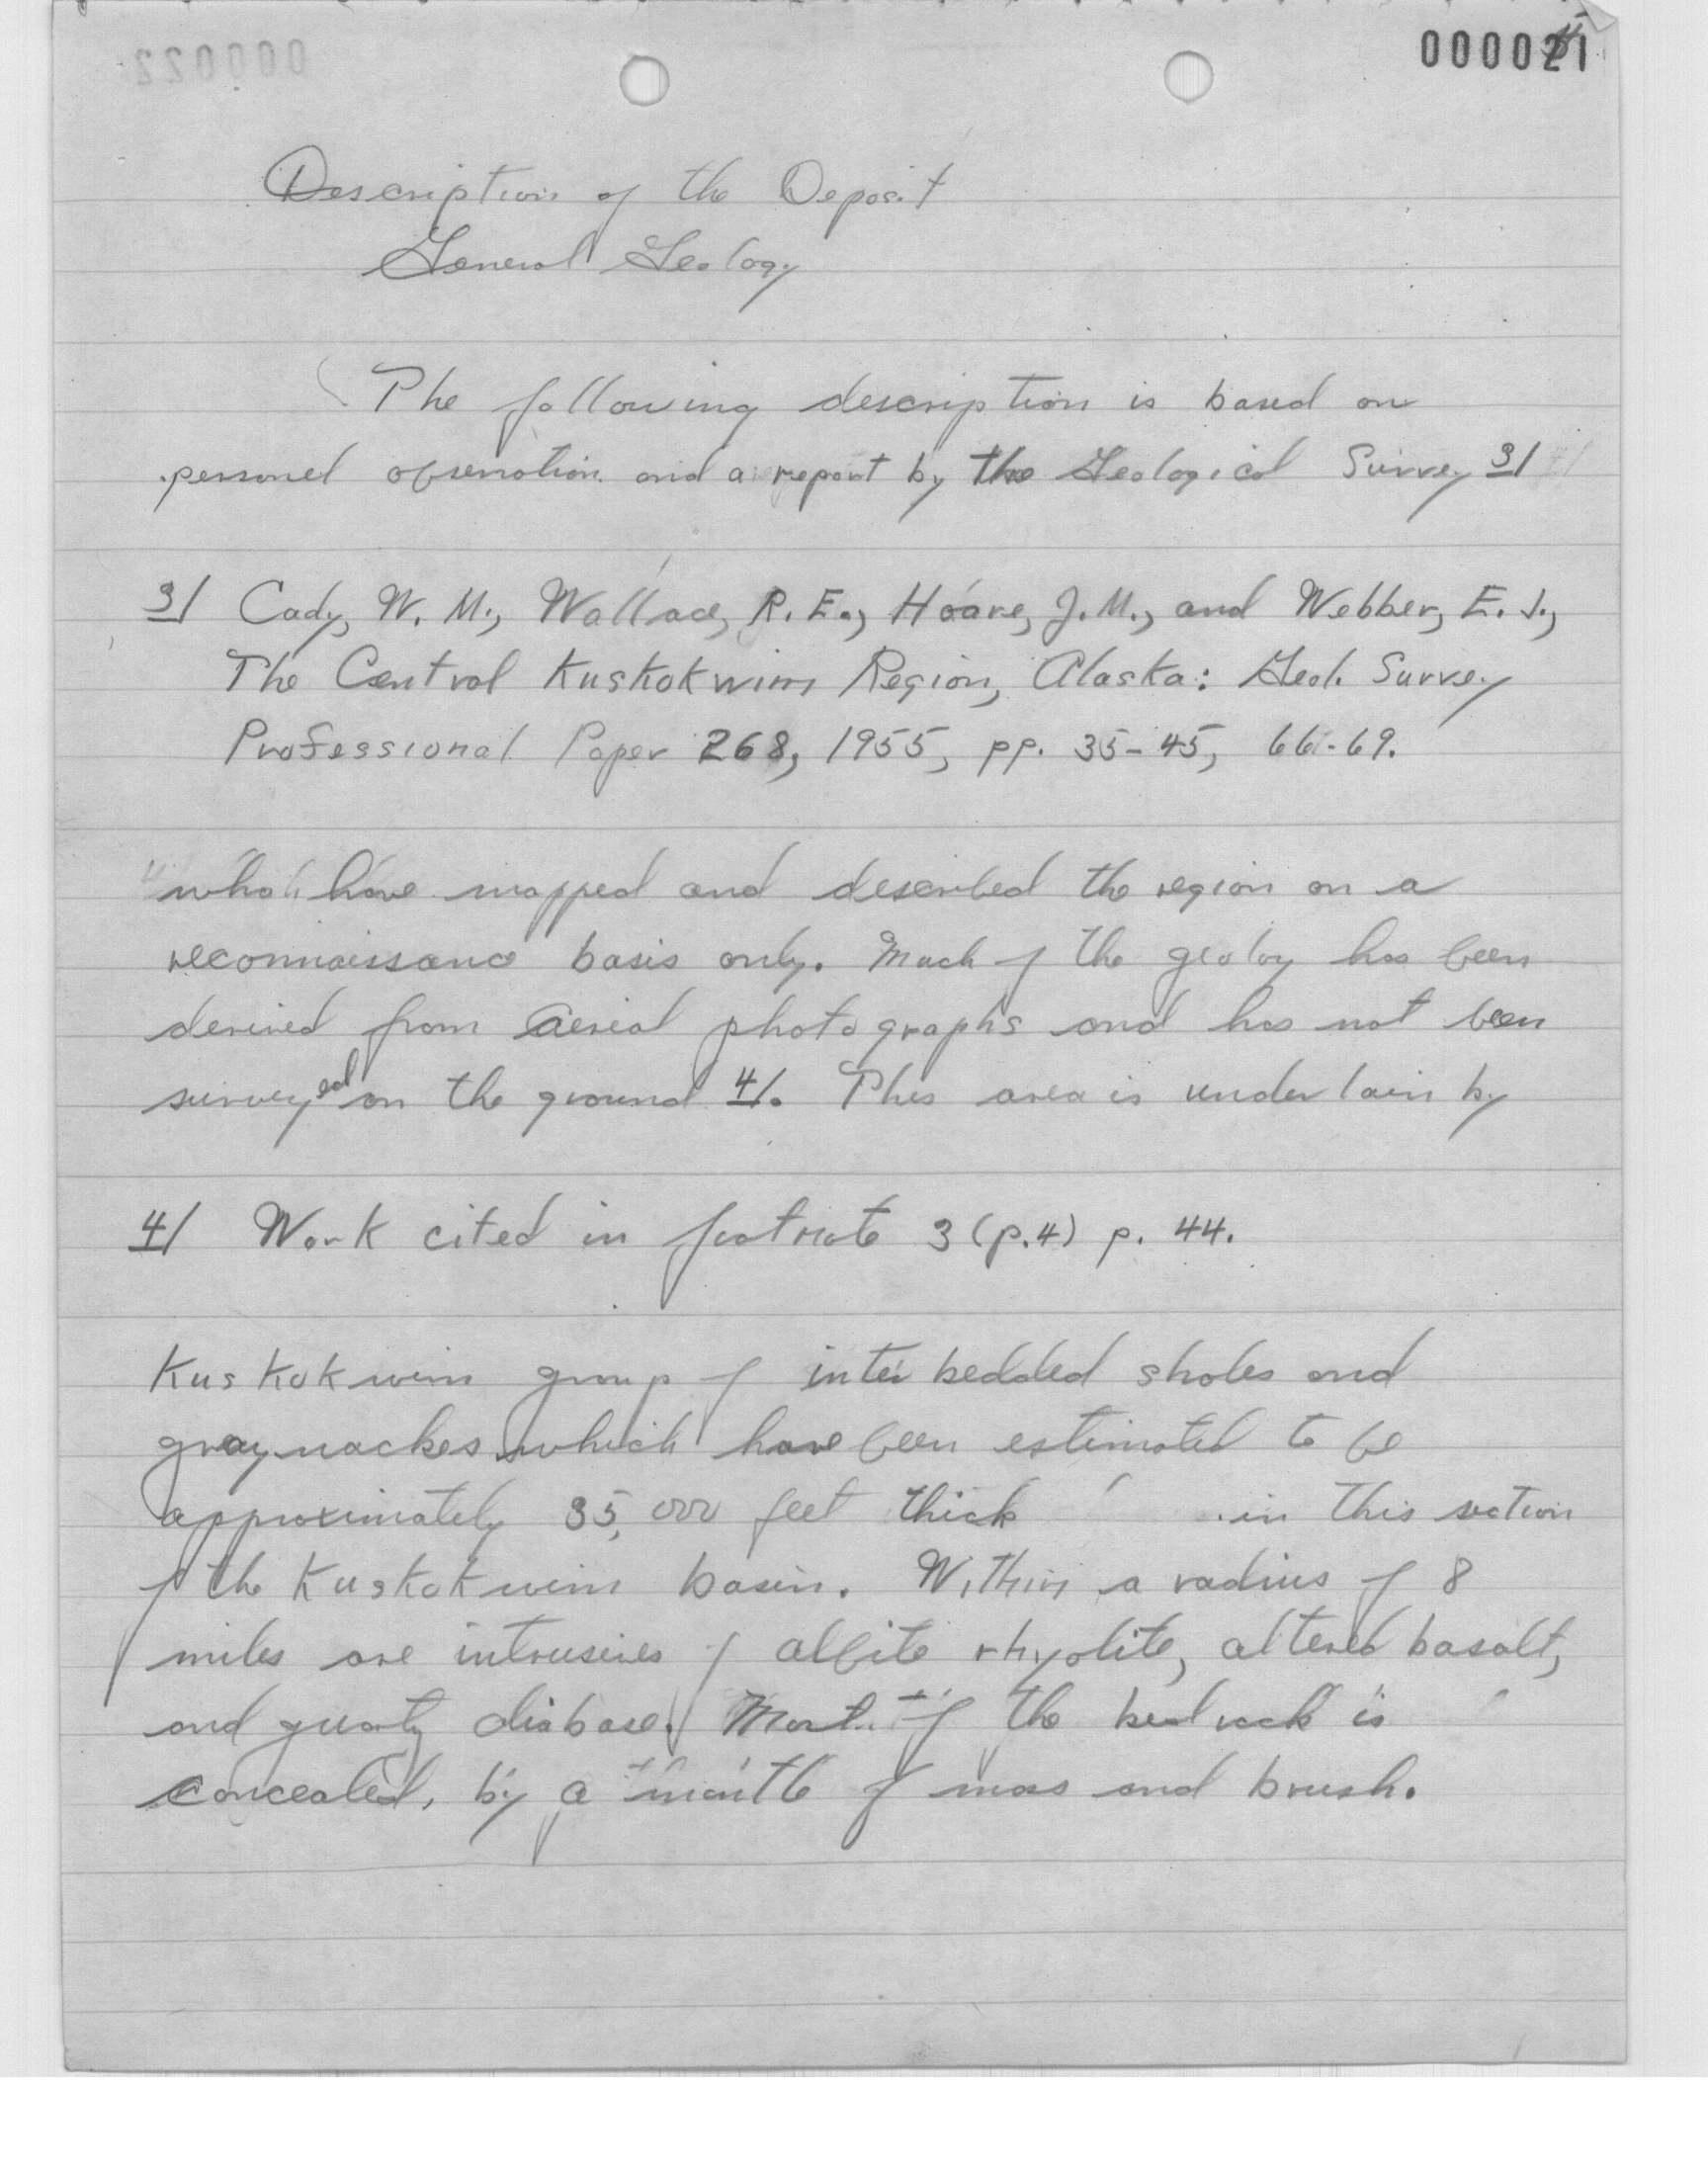 000021
4
Description of the Deposit
General Geology
The following description is based on
personel observation and a report by the Geological Survey 3/
3/ Cady, W. M., Wallace, R. E., Hoare, J. M., and Webber, E. J.,
The Central Kuskokwim Region, Alaska: Geol. Survey
Professional Paper 268, 1955, pp. 35-45, 66-69.
who have mapped and described the region on a
reconnaissance basis only. Much of the geoloy has been
derived from Aerial photographs and has not been
surveyed on the ground 4/. This area is underlain by
4/ Work cited in footnote 3 (p.4) p. 44.
Kuskokwim group of inter bedded shales and
graywackes which have been estimated to be
approximately 35,000 feet thick in this section
of the Kuskokwim basin. Within a radius of 8
miles are intrusives of albite rhyolite, altered basalt,
and quartz diabase. Most of the bedrock is
concealed, by a mantle of moss and brush.